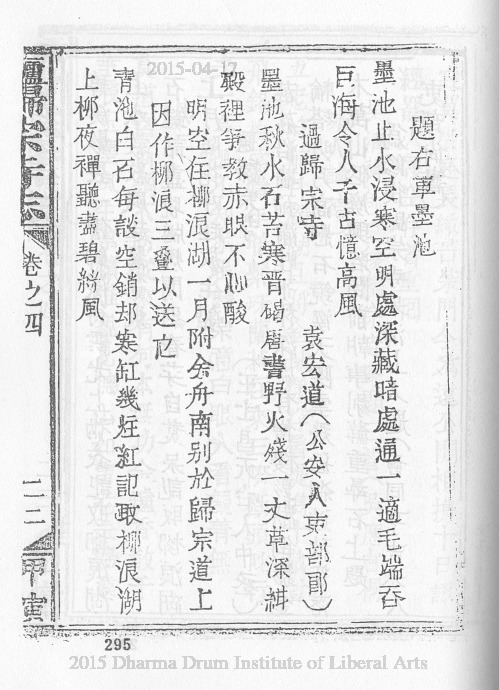 2015-04-17
題右軍墨池
墨池止水浸寒空明處深藏暗處通一適毛端吞
巨海令人千古憶高風
過歸宗寺
袁宏道(公安人吏部郎)
墨池秋水石苔寒晉碣唐書野火殘一丈草深緋
殿裡爭教赤眼不心酸
明空住柳浪湖一月附余舟南別於歸宗道上
因作柳浪三疊以送之
青池白石每談空銷却寒缸幾炷紅記取柳浪湖
上柳夜禪聽盡碧綃風
歸宗寺志
卷之四
二二
甲寅
295
2015 Dharma Drum Institute of Liberal Arts